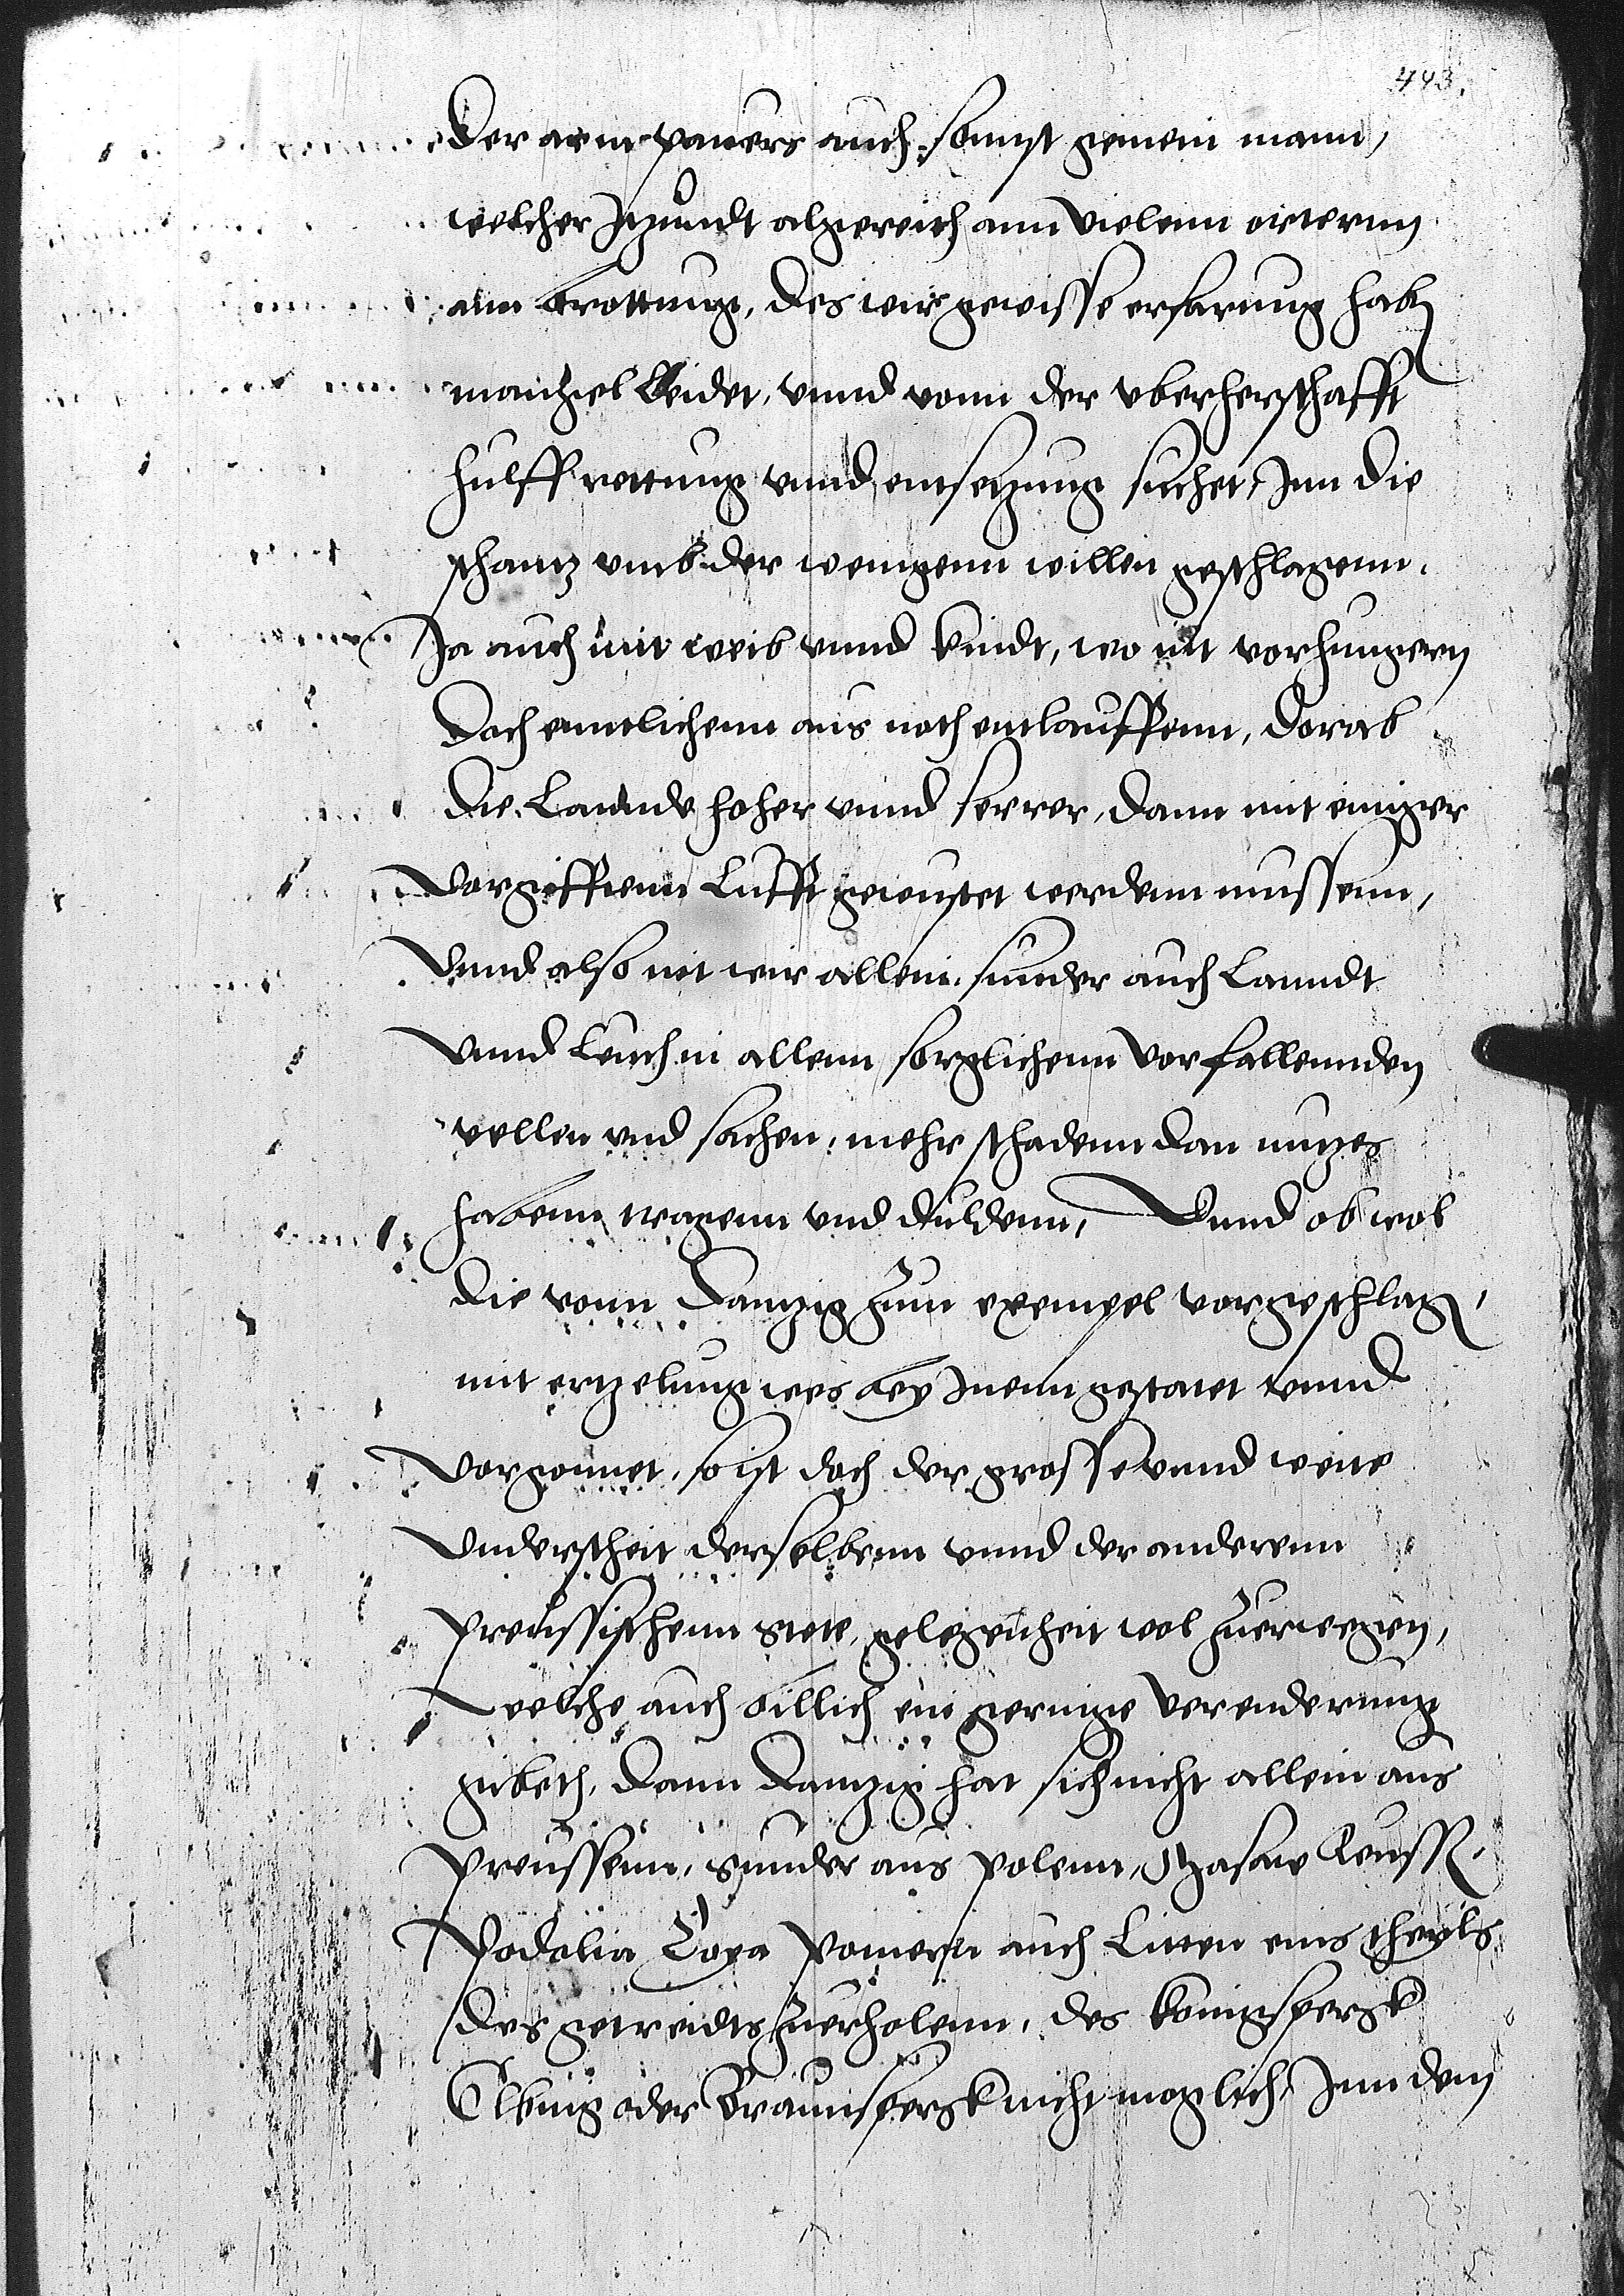 443.
der arm pauers auch sonnst gemein mann,
welcher Itzundt alzereith ann vielenn ortternn
ann brottung, des wir gewisse erfarung habenn
mangel leidet, vnnd vonn der vberherschafft
hulff rettung vnnd entsetzung suchet, Inn die
schantz vmb der wenigenn willen geschlagenn.
Ja auch mit weib vnnd kindt, wo nit vorhungern
Doch enntlichenn aus noth entlauffenn, dorab
die Lannde hoher vnnd serrer, dann mit einiger
Vorgifftenn Lufft gewustet werdenn mussenn,
Vnnd also nit wir allein, sunder auch Lanndt
Vnnd Leuth in allenn sorglichenn Vorfallennden
vellen vnd sachen, mehr schadenn dan nutzes
habenn tragenn vnd duldenn, Vnnd ob wol
die vonn Dantzig zum exempel vorgeschlagen,
mit ertzelung wes bey Inenn gestatet vnnd
Vorgonnet, so ist doch der grosse vnnd weite
Vnderscheit derselbenn vnnd der anderenn
Preussischenn stete, gelegenheit wol zuerwegen,
Welche auch billich ein geringe Verenderung
gebeth, dann Dantzig hat sich nicht allein aus
Preussenn, sunder aus Polenn, Masaw Reussen,
Podolia Coya Pomern auch Litten eins theyls
des getreidts zuerholenn, des Konigspergk
Elbing oder Braunspergk nicht moglich, Inn dem